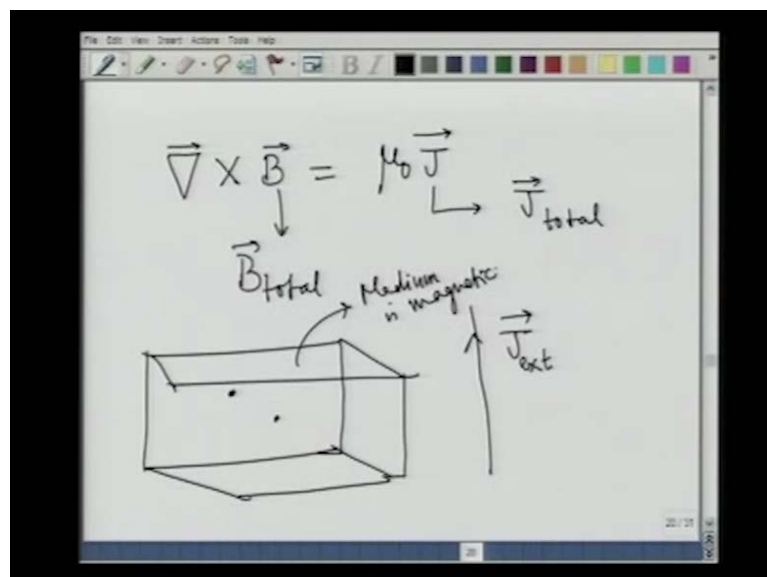 File Edit View Insert Actions Tools Help
B I
∇⃗ × B⃗ = μ₀ J⃗
J⃗ total
B⃗ total
Medium
is magnetic
J⃗ ext
20 / 31
20